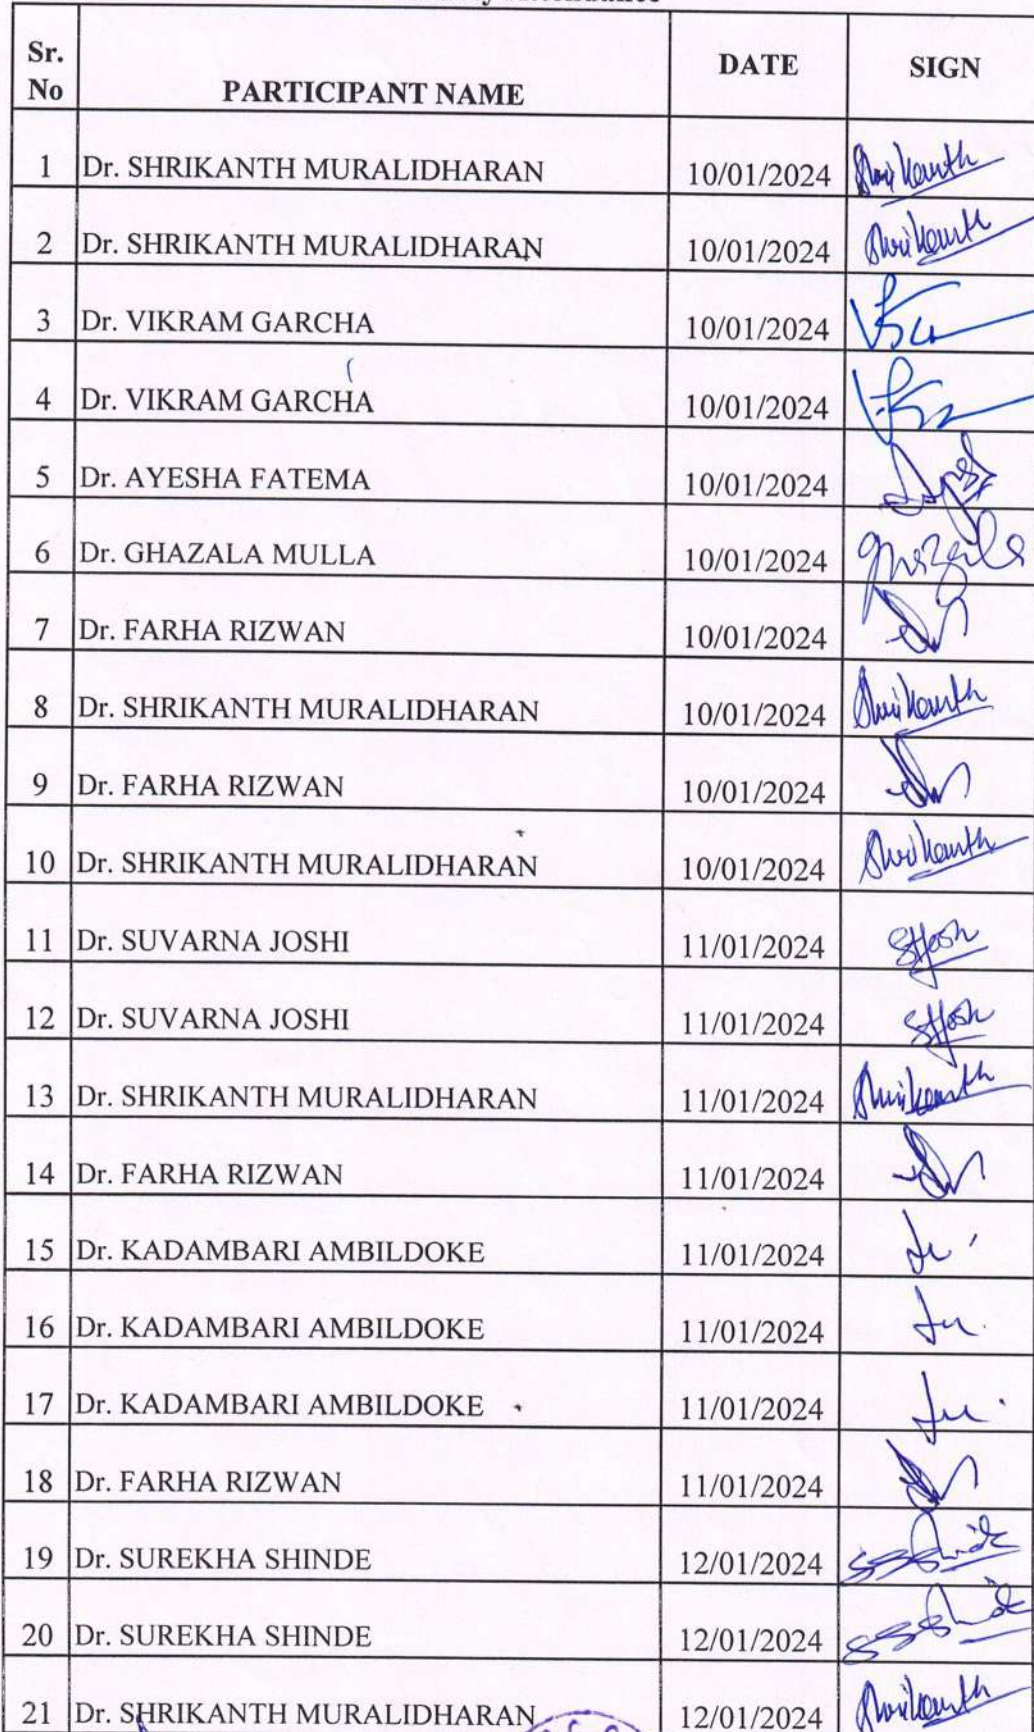 Attendance
Sr. No PARTICIPANT NAME DATE SIGN
1 Dr. SHRIKANTH MURALIDHARAN 10/01/2024 Shrikanth
2 Dr. SHRIKANTH MURALIDHARAN 10/01/2024 Shrikanth
3 Dr. VIKRAM GARCHA 10/01/2024
4 Dr. VIKRAM GARCHA 10/01/2024
5 Dr. AYESHA FATEMA 10/01/2024
6 Dr. GHAZALA MULLA 10/01/2024 Ghazala
7 Dr. FARHA RIZWAN 10/01/2024
8 Dr. SHRIKANTH MURALIDHARAN 10/01/2024 Shrikanth
9 Dr. FARHA RIZWAN 10/01/2024
10 Dr. SHRIKANTH MURALIDHARAN 10/01/2024 Shrikanth
11 Dr. SUVARNA JOSHI 11/01/2024
12 Dr. SUVARNA JOSHI 11/01/2024
13 Dr. SHRIKANTH MURALIDHARAN 11/01/2024 Shrikanth
14 Dr. FARHA RIZWAN 11/01/2024
15 Dr. KADAMBARI AMBILDOKE 11/01/2024
16 Dr. KADAMBARI AMBILDOKE 11/01/2024
17 Dr. KADAMBARI AMBILDOKE 11/01/2024
18 Dr. FARHA RIZWAN 11/01/2024
19 Dr. SUREKHA SHINDE 12/01/2024
20 Dr. SUREKHA SHINDE 12/01/2024
21 Dr. SHRIKANTH MURALIDHARAN 12/01/2024 Shrikanth